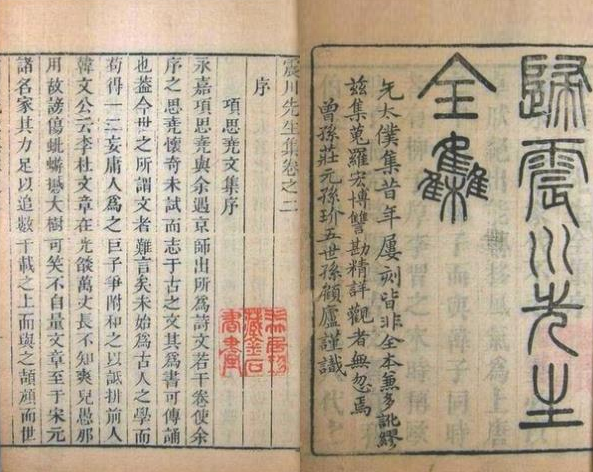 歸震川先生
全集
先太僕集昔年屢刻皆非全本兼多訛繆
茲集蒐羅宏博讐勘精詳觀者無忽焉
曾孫莊元孫玠五世孫顧廬謹識
震川先生集卷之二
序
項思堯文集序
永嘉項思堯與余遇京師出所爲詩文若干卷使余
序之思堯懷竒未試而志于古之文其爲書可傳誦
也葢今世之所謂文者難言矣未始爲古人之學而
苟得一二妄庸人爲之巨子爭附和之以詆排前人
韓文公云李杜文章在光燄萬丈長不知羣兒愚那
用故謗傷蚍蜉撼大樹可笑不自量文章至于宋元
諸名家其力足以追數千載之上而與之頡頏而世